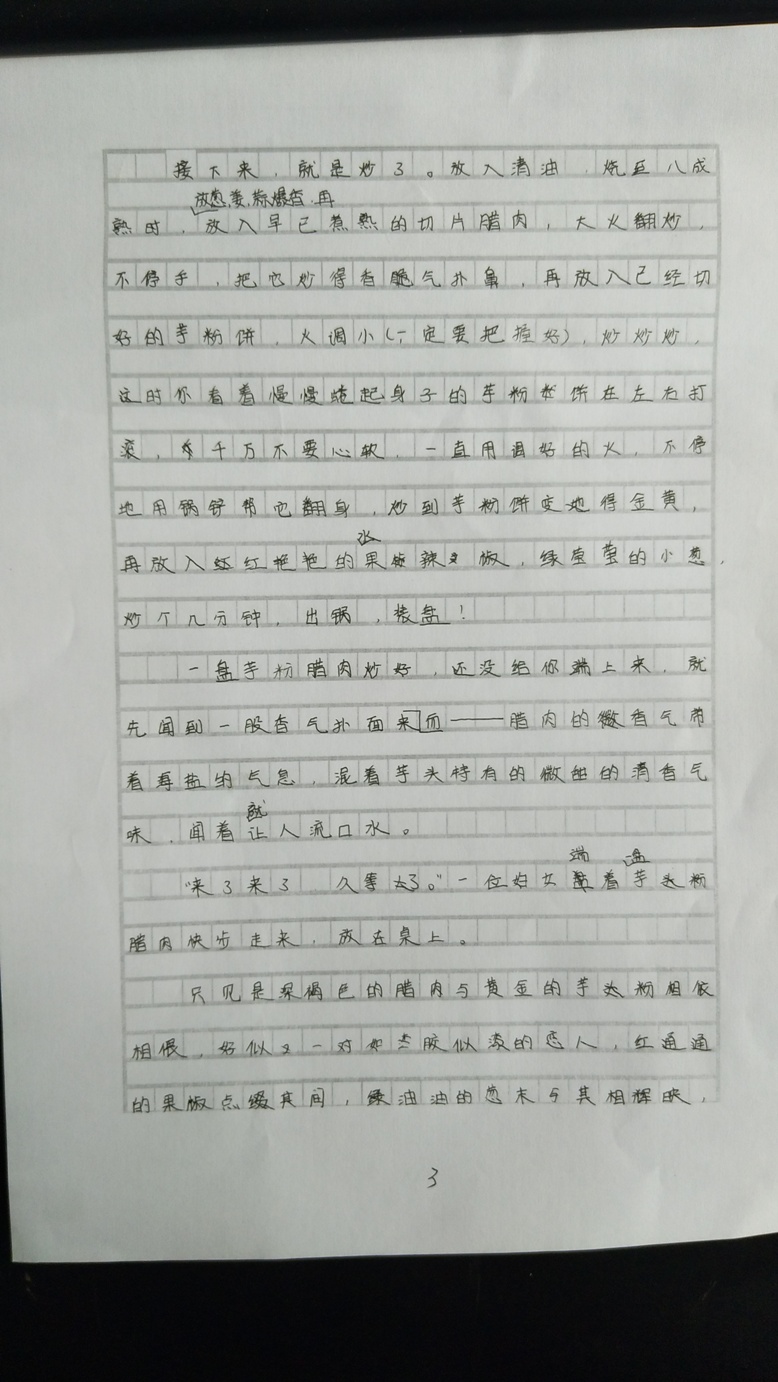 接下来，就是炒了。放入清油，烧至八成
放葱,姜,蒜爆香,再
熟时，放入早已煮熟的切片腊肉，大火翻炒，
不停手，把它炒得香脆气扑鼻，再放入已经切
好的芋粉饼，火调小(一定要把握好)，炒炒炒，
这时你看着慢慢蜷起身子的芋粉饼在左右打
滚，千万不要心软，一直用调好的火，不停
地用锅铲帮它翻身，炒到芋粉饼变地得金黄，
水
再放入红艳艳的果辣椒，绿莹莹的小葱，
炒个几分钟，出锅，装盘！
一盘芋粉腊肉炒好，还没给你端上来，就
先闻到一股香气扑面来而——腊肉的微香气带
着海盐的气息，混着芋头特有的微甜的清香气
就
味，闻着让人流口水。
端 盘
“来了来了，久等了。”一位妇女着芋头粉
腊肉快步走来，放在桌上。
只见是深褐色的腊肉与黄金的芋头粉相依
相偎，好似一对如胶似漆的恋人，红通通
的果椒点缀其间，绿油油的葱末与其相辉映，
3